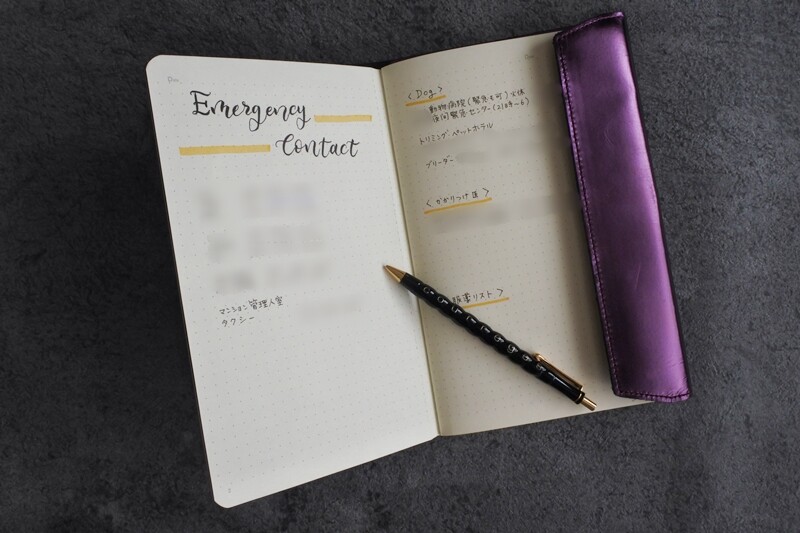 Emergency
Contact
マンション管理人室
タクシー
< Dog >
動物病院(緊急も可)火休
夜間緊急センター(21時〜6)
トリミング・ペットホテル
ブリーダー
< かかりつけ医 >
薬リスト >